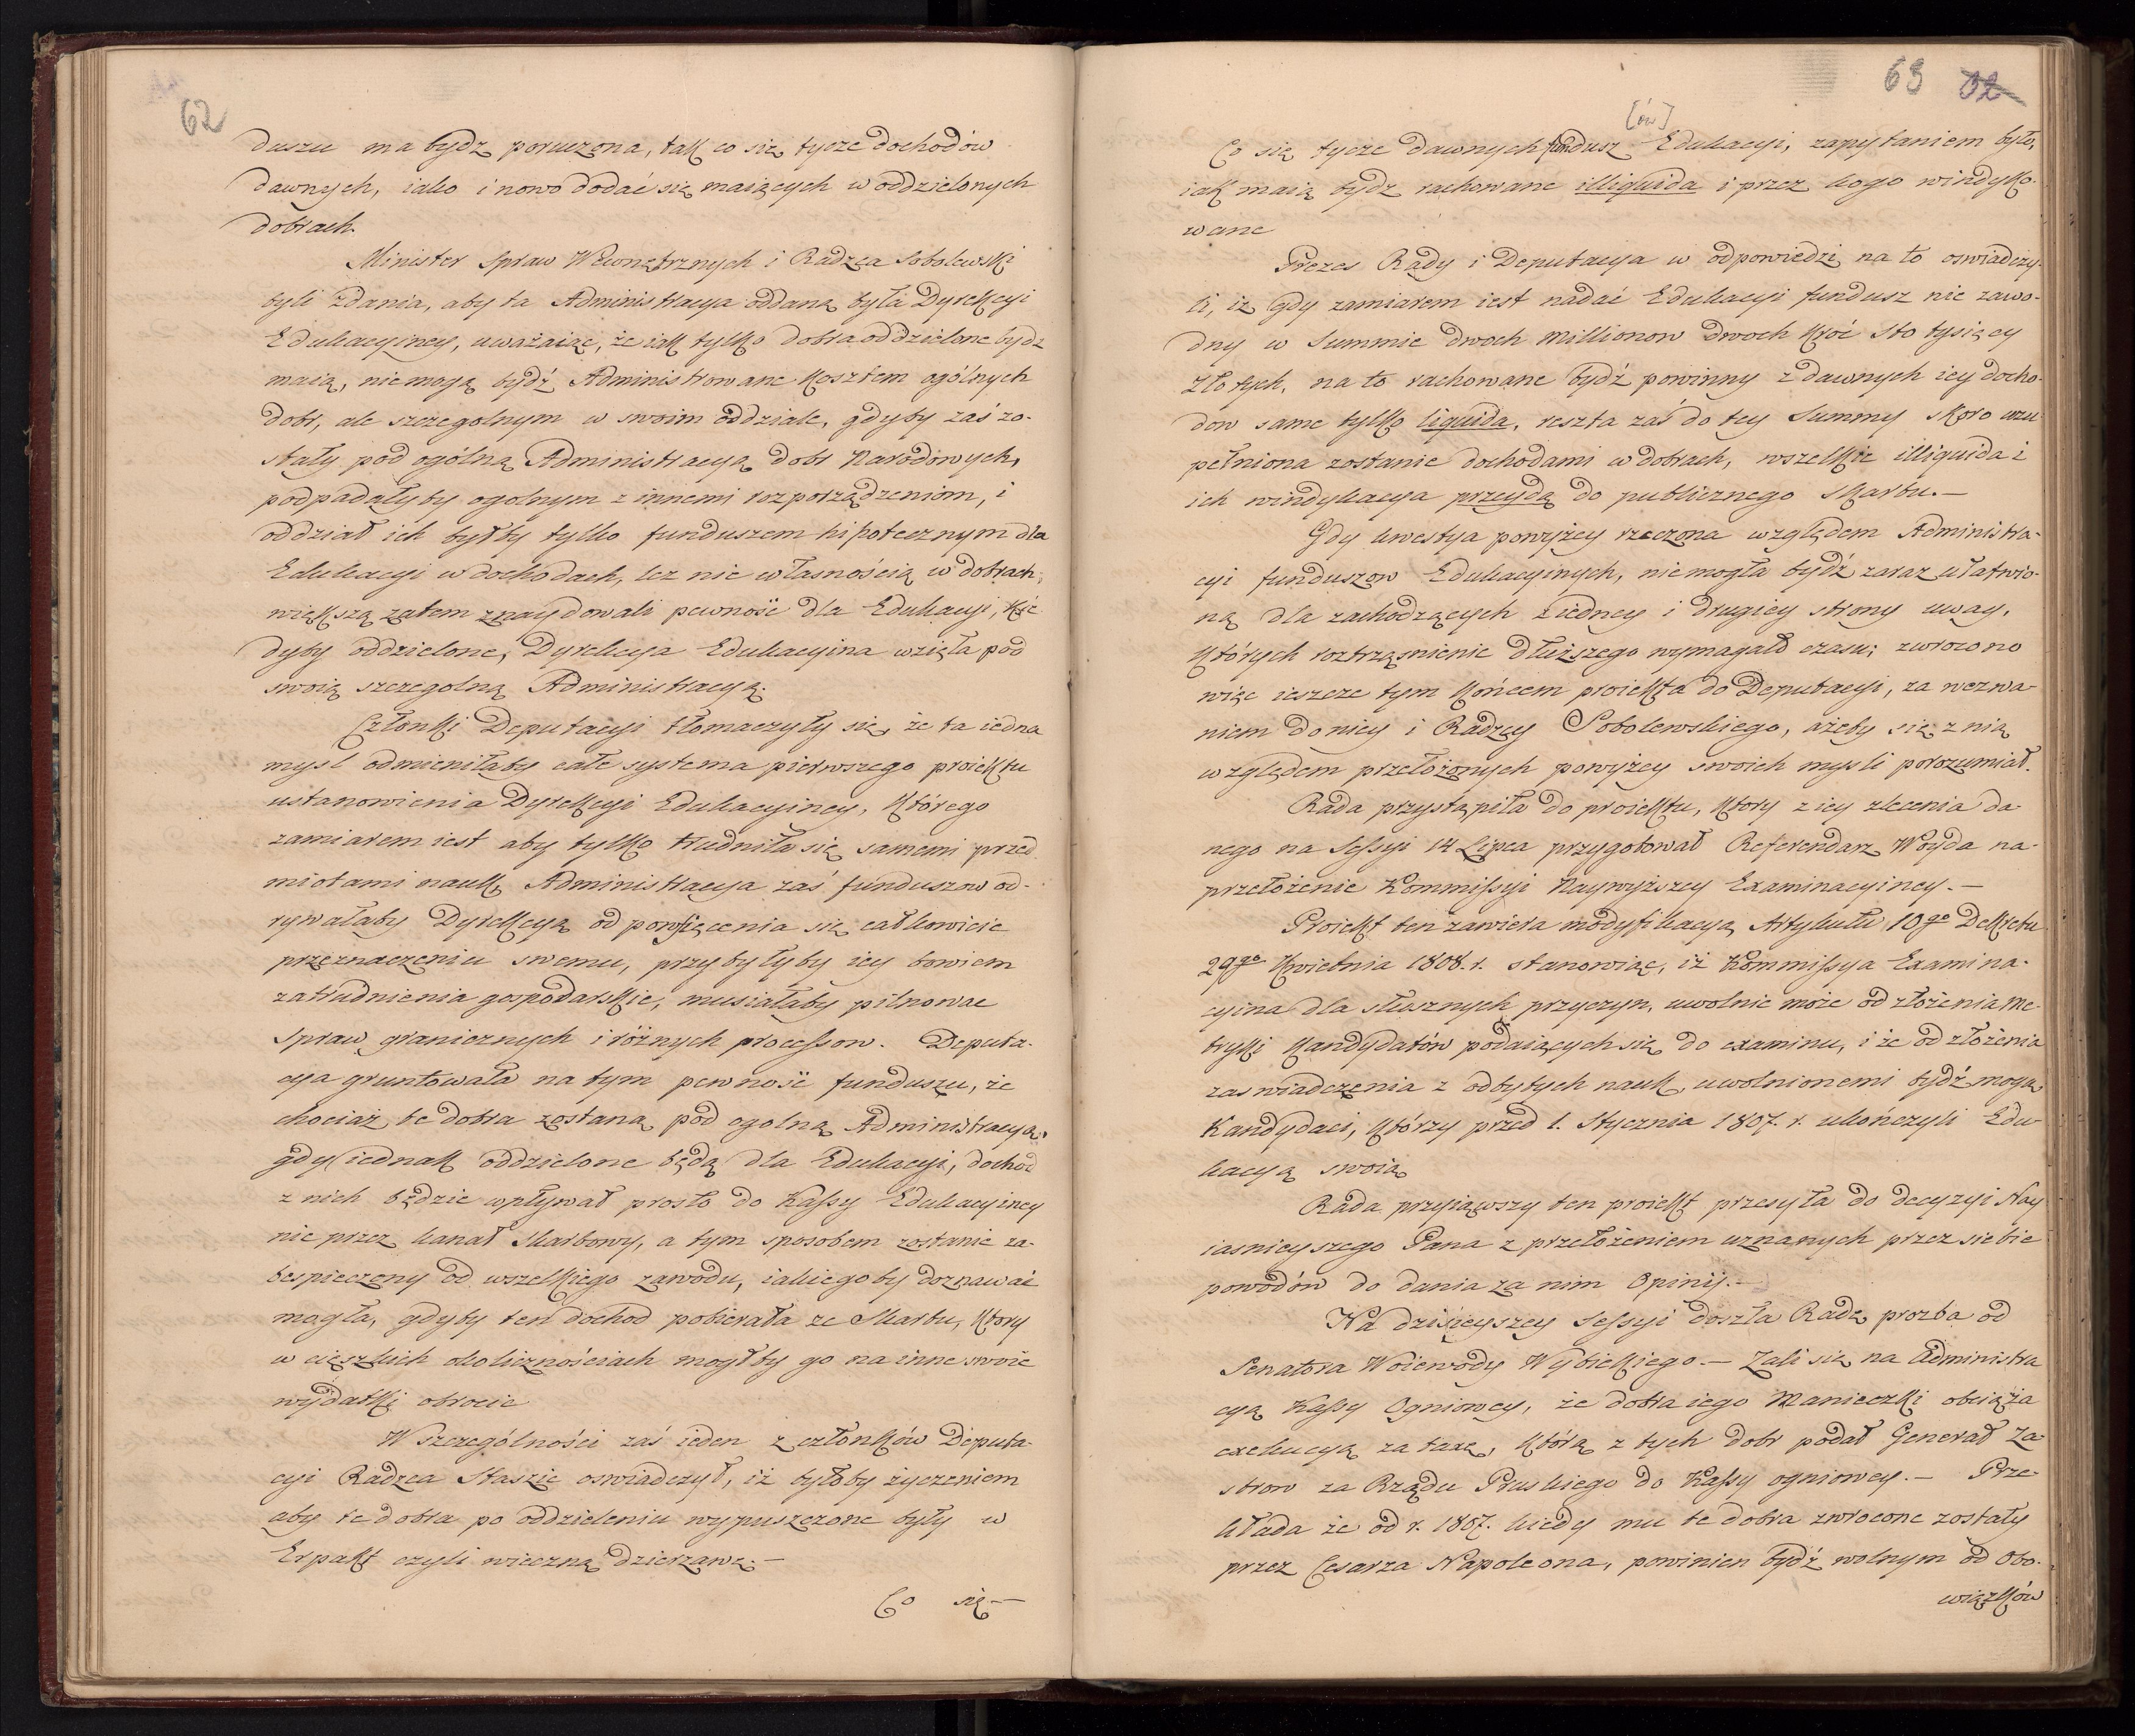 62
duszu ma bydz poruczona, tak co się tycze dochodów
dawnych, iako i nowo dodać się maiących w oddzielonych
dobrach.
Minister Spraw Wewnętrznych i Radzca Sobolewski
byli zdania, aby ta Administracya oddaną była Dyrekcyi
Edukacyiney, uważaiąc, że iak tylko dobra oddzielone bydz
maią, nie mogą bydź Administrowane kosztem ogólnych
dobr, ale szczegolnym w swoim oddziale, gdyby zaś zo-
stały pod ogólną Administracyą dobr Narodowych,
podpadałyby ogolnym z innemi rozporządzeniom, i
oddział ich byłby tylko funduszem hipotecznym dla
Edukacyi w dochodach, lez nie własnością w dobrach;
większą zatem znaydowali pewność dla Edukacyi, kie
dyby oddzielone, Dyrekcya Edukacyina wzięła pod
swoią szczegolną Administracyą.
Członki Deputacyi tłomaczyły się, że ta iedna
mysl odmieniłaby całe systema pierwszego proiektu
ustanowienia Dyrekcyi Edukacyiney, którego
zamiarem iest aby tylko trudniła się samemi przed
miotami nauk, Administracya zaś funduszow od-
rywałaby Dyrekcyą od poswięcenia się całkowicie
przeznaczeniu swemu, przybyłyby iey bowiem
zatrudnienia gospodarskie, musiałaby pilnowac
Spraw granicznych i różnych processow. Deputa-
cya gruntowała na tym pewność funduszu, że
chociaż te dobra zostaną pod ogolną Administracyą,
gdy iednak oddzielone będą dla Edukacyi, dochod
z nich będzie wpływał prosto do Kassy Edukacyiney
nie przez kanał Skarbowy, a tym sposobem zostanie za-
bespieczony od wszelkiego zawodu, iakiegoby doznawać
mogła, gdyby ten dochod pobierała ze Skarbu, ktory
w cięszkich okolicznościach mogłby go na inne swoie
wydatki obrocic
W szczególności zaś ieden z członków Deputa-
cyi Radzca Staszic oswiadczył, iż byłoby życzeniem
aby te dobra po oddzieleniu wypuszczone były w
Erpakt czyli wieczną dzierzawę.—
Co się—
63 32
[ów]
Co się tycze dawnych fundusz Edukacyi, zapytaniem było,
iak maią bydz rachowane illiquida i przez kogo windyko-
wane
Prezes Rady i Deputacya w odpowiedzi na to oswiadczy-
li, iż gdy zamiarem iest nadać Edukacyi fundusz nie zawo-
dny w Summie dwoch Millionow dwoch kroć Sto tysięcy
Złotych, na to rachowane bydź powinny z dawnych iey docho-
dow same tylko liquida, reszta zaś do tey Summy skoro uzu
pełniona zostanie dochodami w dobrach, wszelkie illiquida i
ich windykacya przeydą do publicznego Skarbu.—
Gdy kwestya powyżey rzeczona względem Administra-
cyi funduszow Edukacyinych, nie mogła bydź zaraz ułatwio-
ną dla zachodzących z iedney i drugiey strony uwag,
których roztrząsnienie dłuższego wymagało czasu; zwrocono
więc ieszcze tym końcem proiekta do Deputacyi, za wezwa-
niem do niey i Radzcy Sobolewskiego, ażeby się z nią
względem przełożonych powyżey swoich mysli porozumiał.
Rada przystąpiła do proiektu, ktory z iey zlecenia da-
nego na Sessyi 14 Lipca przygotował Referendarz Woyda na-
przełożenie Kommissyi Naywyższey Examinacyiney.—
Proiekt ten zawiera modyfikacyą Artykułu 10go Dekretu
29go Kwietnia 1808. r. stanowiąc, iż Kommissya Examina-
cyina dla słusznych przyczyn, uwolnic może od złożenia me-
tryki Kandydatów podaiących się do examinu, i że od złożenia
zaswiadczenia z odbytych nauk, uwolnionemi bydź mogą
Kandydaci, którzy przed 1. Stycznia 1807. r. ukończyli Edu-
kacyą swoią
Rada przyiąwszy ten proiekt przesyła do decyzyi Nay
iasnieyszego Pana z przełożeniem uznanych przez siebie
powodów do dania za nim Opinii.—
Na dzisieyszey Sessyi doszła Radę prozba od
Senatora Woiewody Wybickiego.— Zali się na Administra
cyą Kassy Ogniowey, że dobra iego Manieczki obciąża
exekucyą za taxę, którą z tych dobr podał Generał Za-
strow za Rządu Pruskiego do Kassy ogniowey.— Prze-
kłada że od r. 1807. kiedy mu te dobra zwrocone zostały
przez Cesarza Napoleona, powinien bydź wolnym od obo-
wiązków